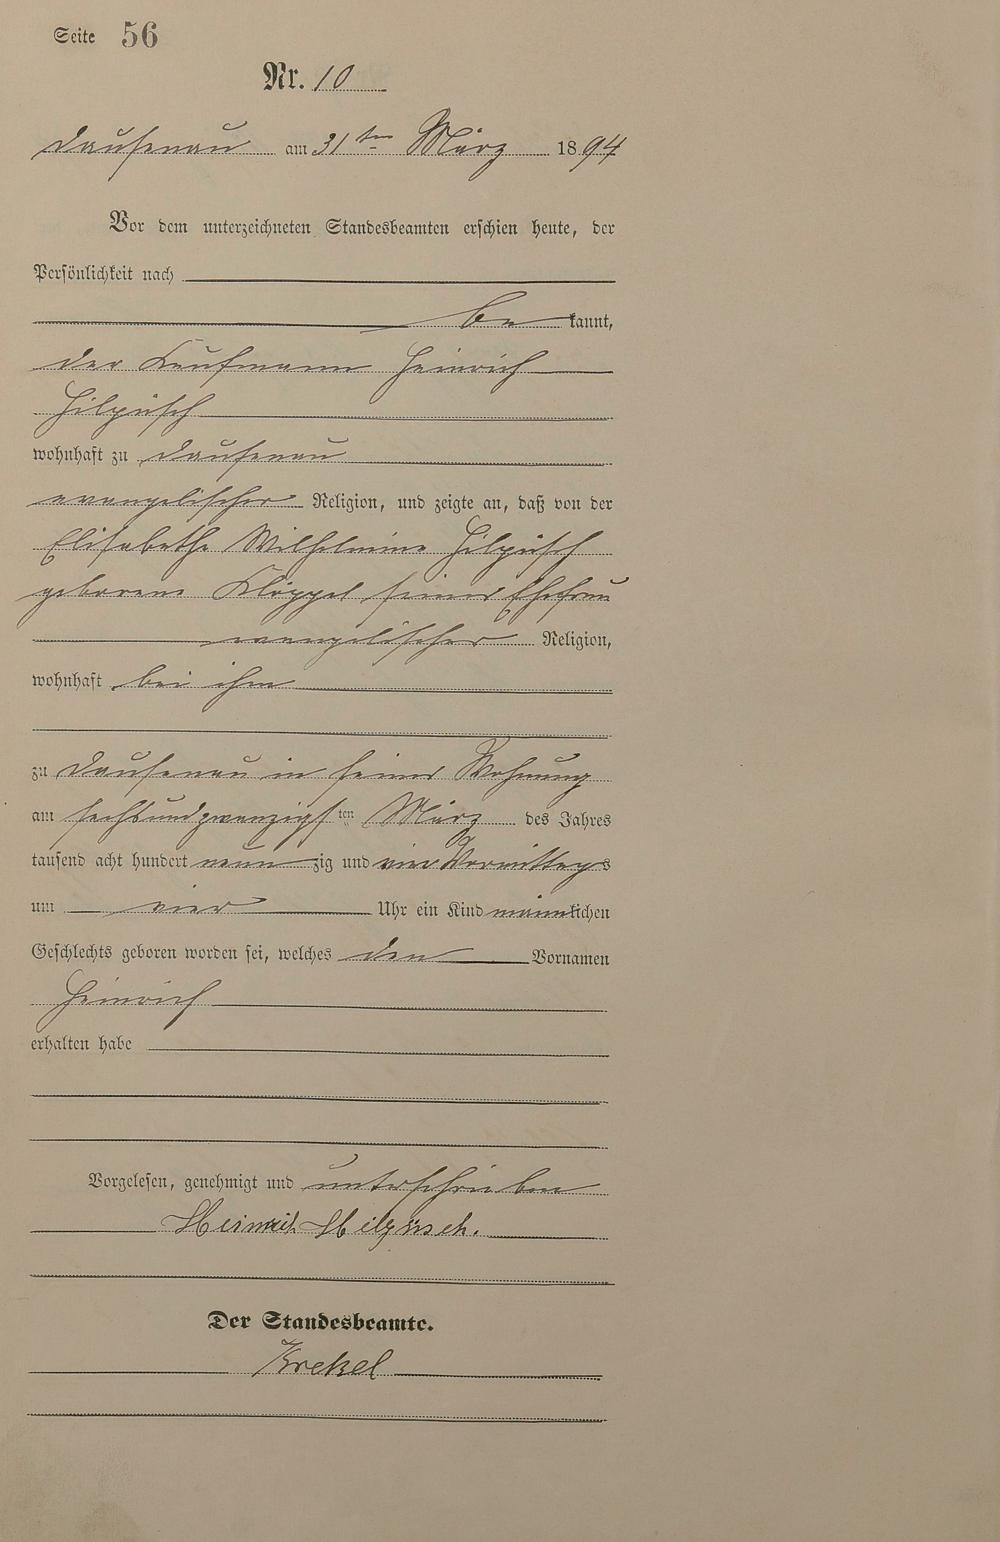 Seite 56
Nr. 10
Dausenau am 31ten März 1894
Vor dem unterzeichneten Standesbeamten erschien heute, der
Persönlichkeit nach
be kannt,
der Kaufmann Heinrich
Hilpüsch
wohnhaft zu Dausenau
evangelischer Religion, und zeigte an, daß von der
Elisabethe Wilhelmine Hilpüsch
geborene Klöppel seiner Ehefrau
evangelischer Religion,
wohnhaft bei ihm
zu Dausenau in seiner Wohnung
am sechsundzwanzigsten März des Jahres
tausend acht hundert neunzig und vier Vormittags
um vier Uhr ein Kind männlichen
Geschlechts geboren worden sei, welches den Vornamen
Heinrich
erhalten habe
Vorgelesen, genehmigt und unterschrieben
Heinrich Hilpüsch.
Der Standesbeamte.
Krekel